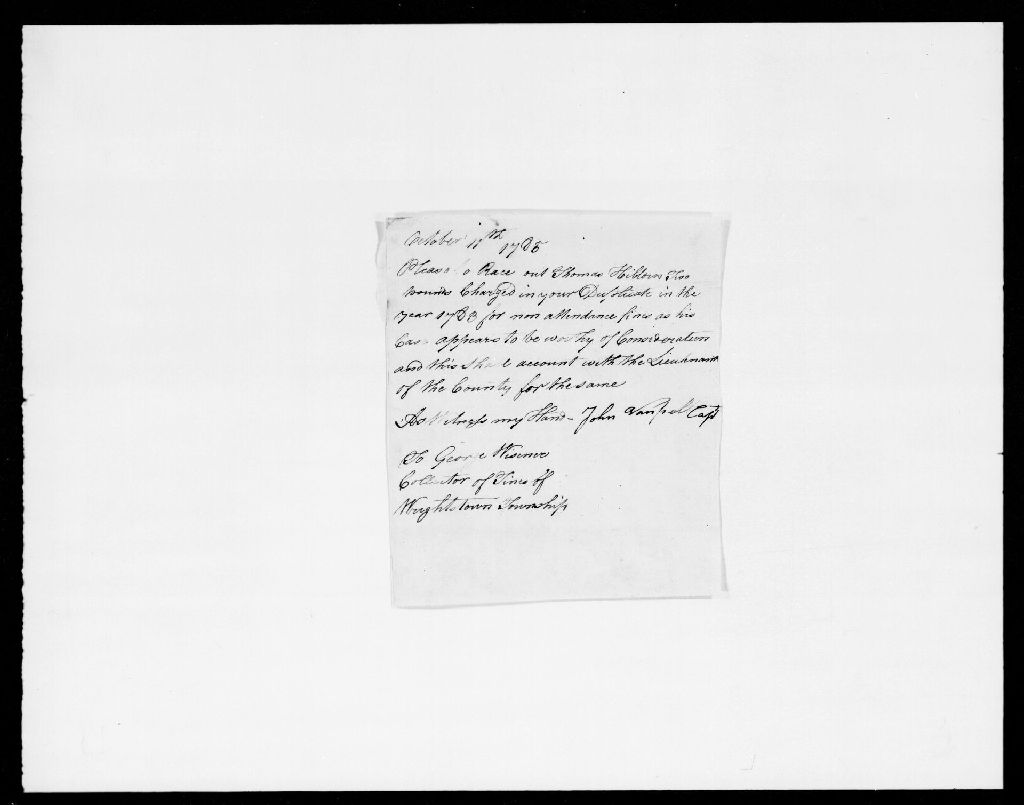 October 11th 1785
Please to Race out Thomas Hibbern Two
pounds Charged in your Duplicate in the
year 1783 for non attendance fines as his
Case appears to be worthy of Consideration
and this shall account with the Lieutenant
of the County for the same
As Witness my Hand - John Vanpelt Capt
To George Wisener
Collector of Fines of
Wrightstown Township